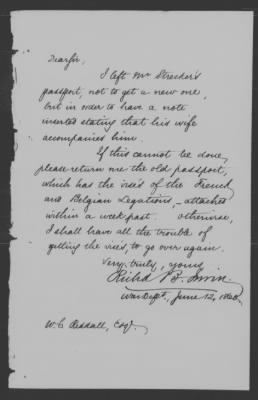 Dear Sir,
I left Mr Strecker's
passport, not to get a new one,
but in order to have a note
inserted stating that his wife
accompanies him.
If this cannot be done,
please return me the old passport,
which has the visés of the French
and Belgian Legations, – attached
within a week past. Otherwise,
I shall have all the trouble of
getting the visés, to go over again.
Very truly, yours,
Richd B. Irwin
War Dept, June 12,
W. C. Reddall, Esq.